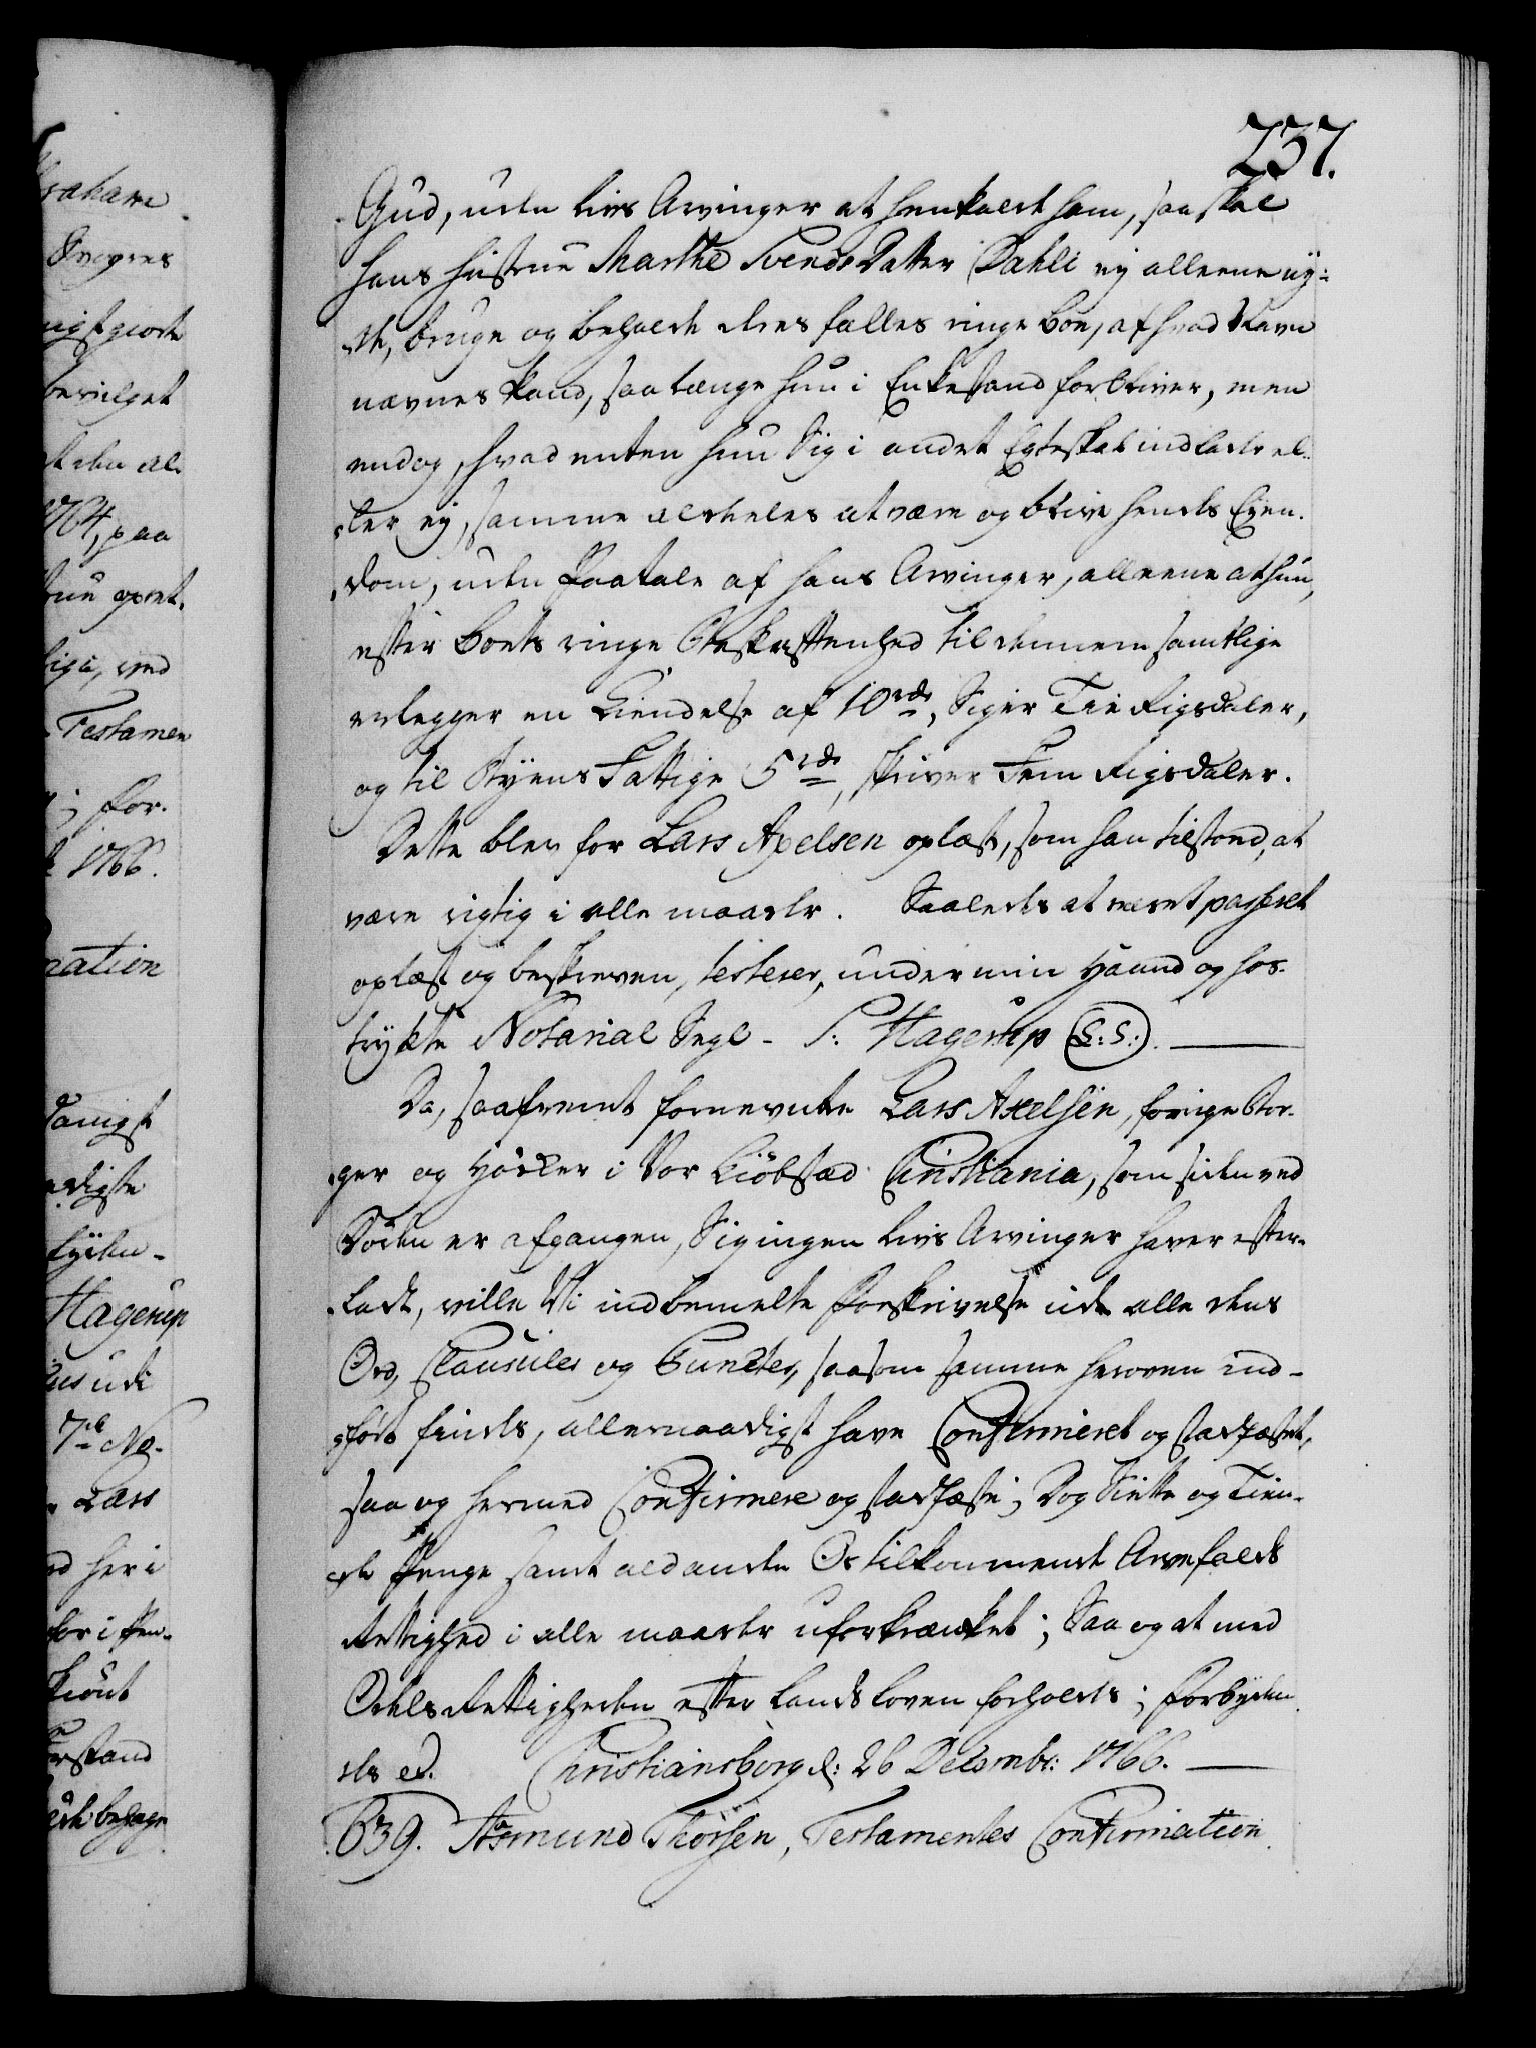 237.
Gud, uden Livs Arvinger at henkalde ham, saa skal
hans Hustrue Marthe Svends Datter Dahli ej alleene ny-
de, bruge og beholde deres fælles ringe Boe, af hvad Navn
nævnes kand, saa længe hun i Enkestand forbliver, men
endog, hvad enten hun Sig i andet Egteskab indlader el-
ler ej, samme aldeeles at være og blive hendes Eyen-
dom, uden Paatale af hans Arvinger, alleene at hun,
efter Boets ringe Beskaffenhed til dennem samtlige
erlegger en Kiendelse af 10rd, Siger Tie Rigsdaler,
og til Byens Fattige 5rd, skriver Fem Rigsdaler.
Dette blev for Lars Axelsen oplæst, som han tilstoed, at
være rigtig i alle maader. Saaledes at være passeret
oplæst og beskreven, testerer, under min Haand og hos-
trykte Notarial Segl - S: Hagerup (L:S:).
Da, saafremt fornevnte Lars Axelsen, forige Bor-
ger og Høcker i Vor Kiöbstad Christiania, som siden ved
Døden er afgangen, Sig ingen Livs Arvinger haver efter-
ladt, ville Vi indbemelte Forskrivelse udi alle dens
Ord, Clausuler og Puncter, saasom samme heroven ind-
ført findes, allernaadigst have Confirmeret og stadfæstet,
saa og hermed Confirmere og stadfæste; Dog Siette og Tien-
de Penge samt ald anden Os tilkommende Arvefalds
Rettighed i alle maader uforkrænket; Saa og at med
Odels Rettigheden efter Lands Loven forholdes; Forbyden-
des et. Christiansborg d: 26 Decembr: 1766.
639. Aasmund Thorsen, Testamentes Confirmation.